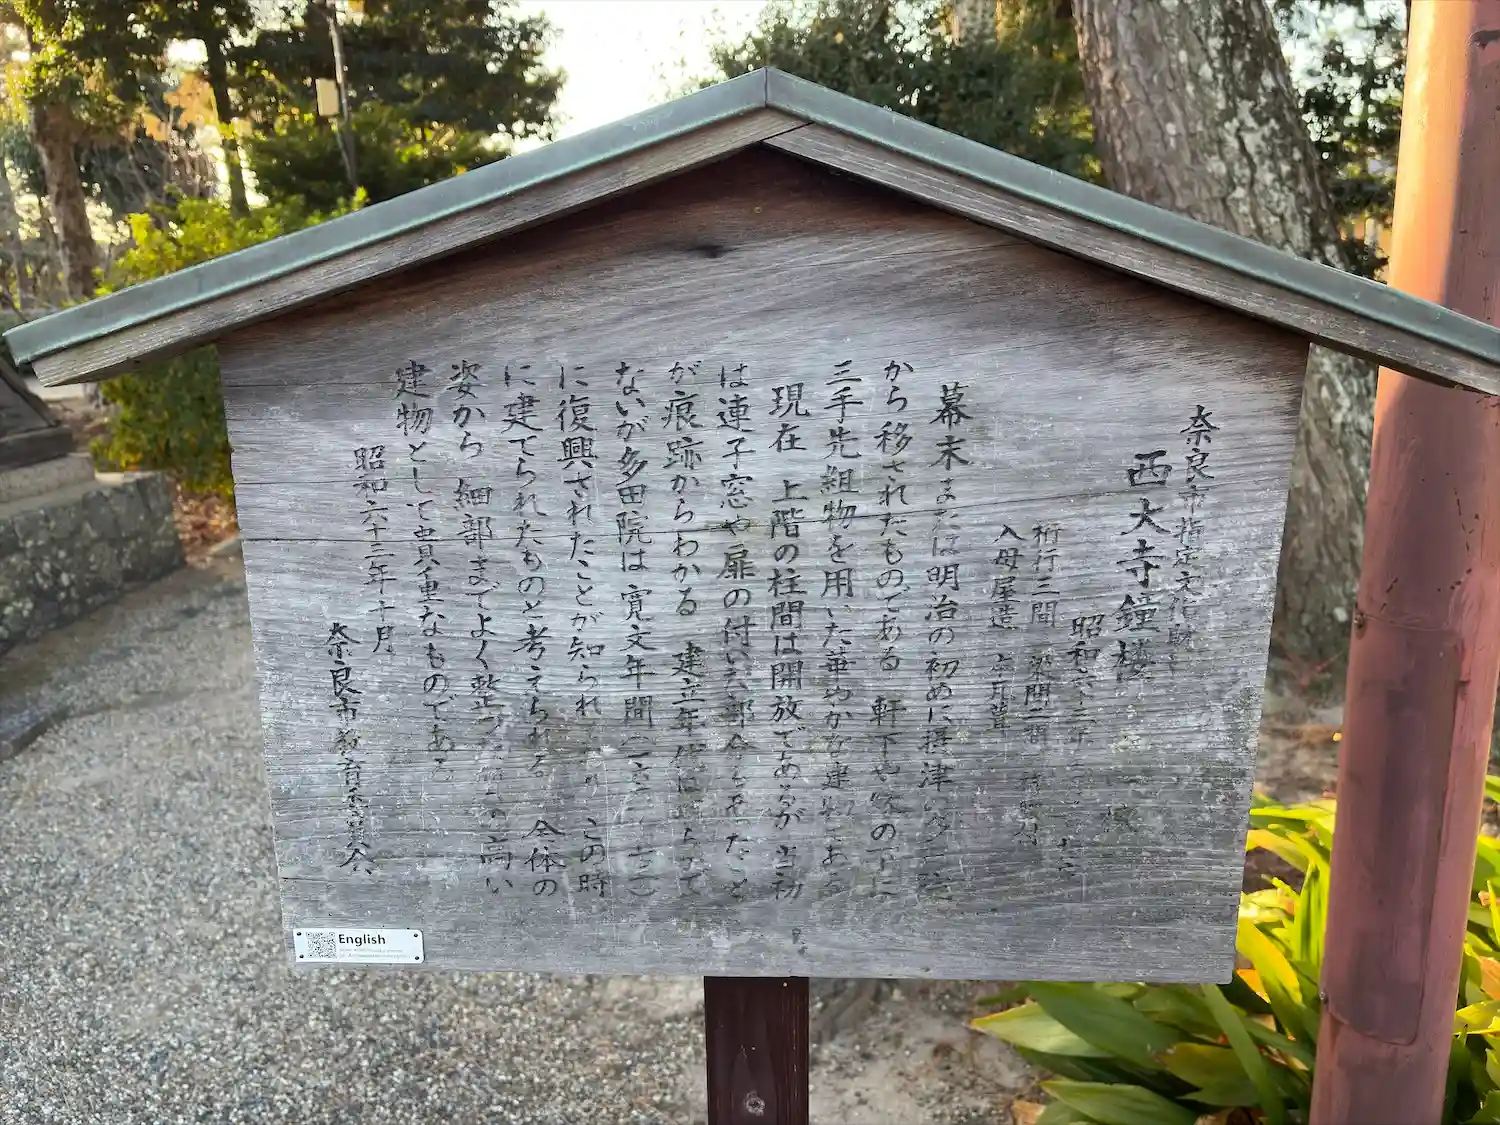 奈良市指定文化財
西大寺鐘楼 一棟
昭和六十三年
桁行三間 梁間二間 袴腰付
入母屋造 本瓦葺
幕末または明治の初めに摂津の多田院
から移されたものである 軒下や縁の下に
三手先組物を用いた華やかな建物である
現在 上階の柱間は開放であるが 当初
は連子窓や扉の付いた部分もあったこと
が痕跡からわかる 建立年代は明らかで
ないが多田院は 寛文年間
に復興されたことが知られており この時
に建てられたものと考えられる 全体の
姿から 細部までよく整った 高い
建物として貴重なものである
昭和六十三年十月
奈良市教育委員会
English